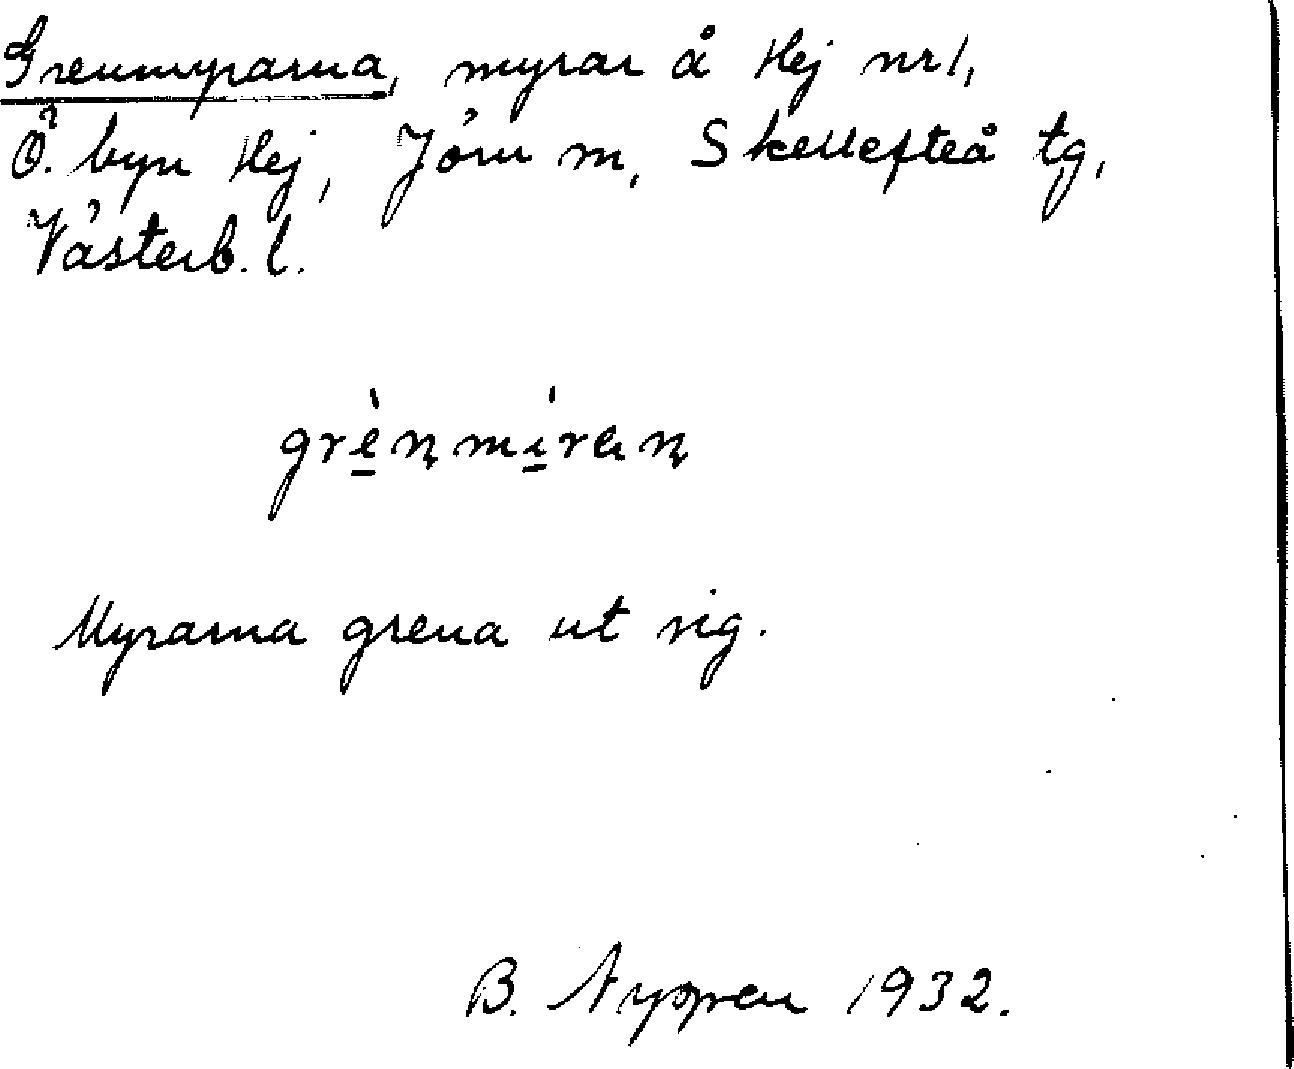 Grenmyrarna, myrar å Hej nr 1,
Ö. byn Hej, Jörn m, Skellefteå tg,
Västerb. l.
grènmíran
Myrarna grena ut sig.
B. 1932.